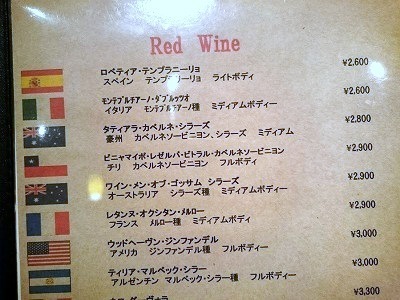 Red Wine
ロペティア・テンプラニーリョ ¥2,600
スペイン テンプラニーリョ ライトボディ
モンテプルチアーノ・ダブルッツオ ¥2,600
イタリア モンテプルチアーノ種 ミディアムボディー
タティアラ・カベルネ・シラーズ ¥2,800
豪州 カベルネソービニヨン、シラーズ ミディアム
ビニャマイポ・レゼルバ・ビトラル・カベルネソービニヨン ¥2,900
チリ カベルネソービニヨン フルボディ
ワイン・メン・オブ・ゴッサム シラーズ ¥2,900
オーストラリア シラーズ種 ミディアムボディー
レタンヌ・オクシタン・メルロー ¥2,900
フランス メルロー種 ミディアムボディ
ウッドヘーヴン・ジンファンデル ¥3,000
アメリカ ジンファンデル種 フルボディー
ティリア・マルベック・シラー ¥3,000
アルゼンチン マルベック・シラー種 フルボディー
¥3,300